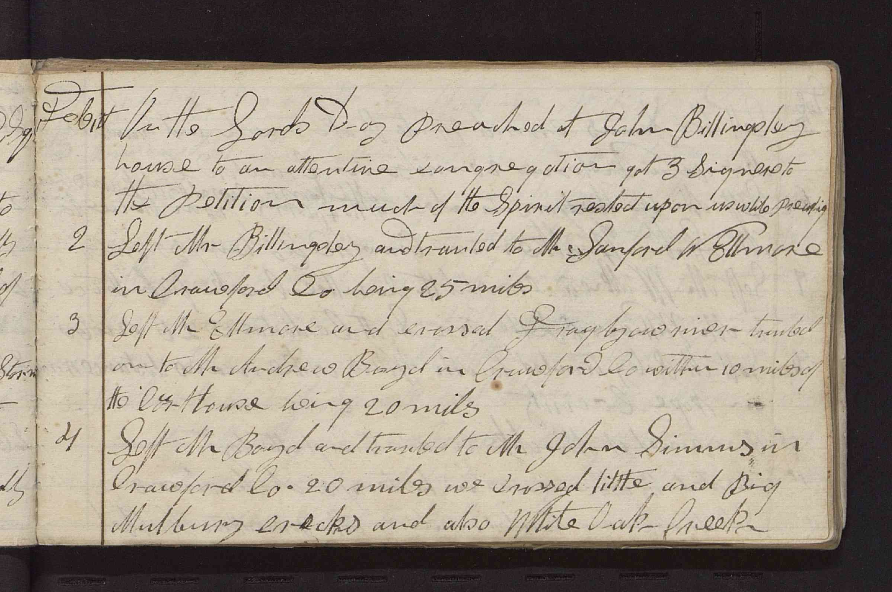 Feb 1st On the Lords Day preached at John Billingsley
house to an attentive congregation got 3 Signers to
the Petition much of the Spirit rested upon us while preachig
2 Left Mr Billingsley and travled to Mr Sanford W Ellmore
in Crawford Co being 25 miles
3 Left Mr Ellmore and crossed river travled
on to Mr Andrew Boyd in Crawford Co within 10 miles of
the Cort House being 20 miles
4 Left Mr Boyd and travled to Mr John Simms in
Crawford Co. 20 miles we crossed little and Big
Mulbury creeks and also White Oak Creek